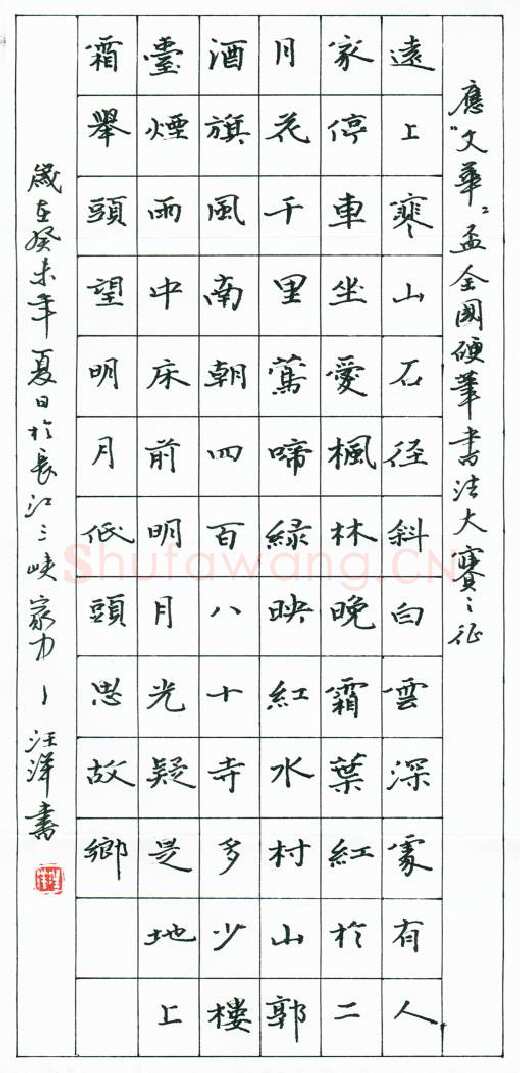 應"文華"盃全國硬筆書法大賽之征
遠上寒山石径斜白雲深處有人
家停車坐愛楓林晚霜葉紅於二
月花千里鶯啼緑映紅水村山郭
酒旗風南朝四百八十寺多少樓
臺煙雨中床前明月光疑是地上
霜舉頭望明月低頭思故鄉
歲在癸未年夏日於長江三峽 汪洋書
Shufawang.CN